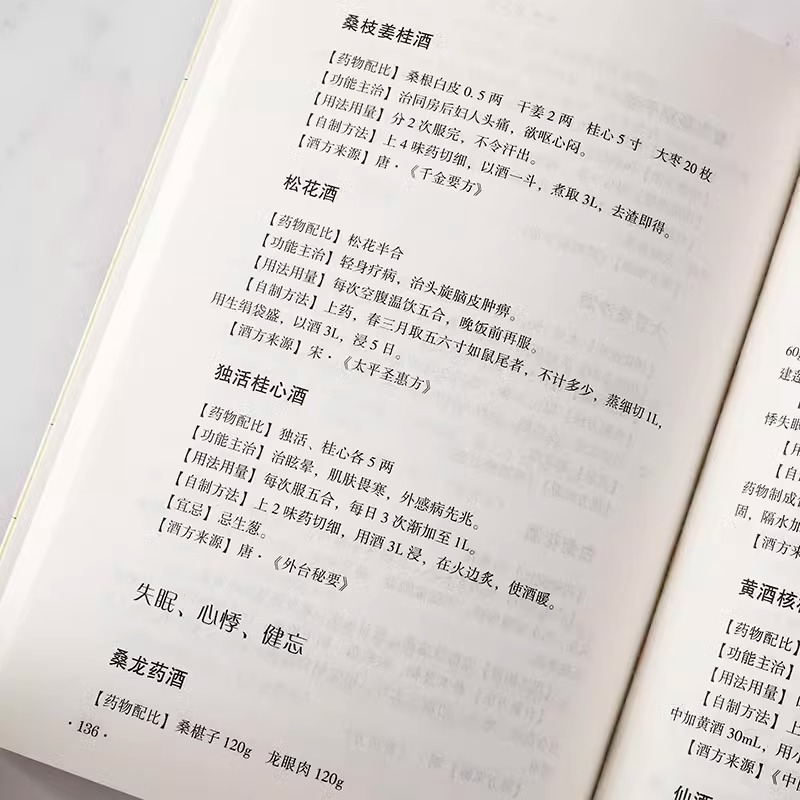 桑枝姜桂酒
【药物配比】桑根白皮0.5两　干姜2两　桂心5寸　大枣20枚
【功能主治】治同房后妇人头痛，欲呕心闷。
【用法用量】分2次服完，不令汗出。
【自制方法】上4味药切细，以酒一斗，煮取3L，去渣即得。
【酒方来源】唐·《千金要方》
松花酒
【药物配比】松花半合
【功能主治】轻身疗病，治头旋脑皮肿痹。
【用法用量】每次空腹温饮五合，晚饭前再服。
【自制方法】上药，春三月取五六寸如鼠尾者，不计多少，蒸细切1L，
用生绢袋盛，以酒3L，浸5日。
【酒方来源】宋·《太平圣惠方》
独活桂心酒
【药物配比】独活、桂心各5两
【功能主治】治眩晕，肌肤畏寒，外感病先兆。
【用法用量】每次服五合，每日3次渐加至1L。
【自制方法】上2味药切细，用酒3L浸，在火边炙，使酒暖。
【宜忌】忌生葱。
【酒方来源】唐·《外台秘要》
失眠、心悸、健忘
桑龙药酒
【药物配比】桑椹子120g　龙眼肉120g
·136·
60
建
悸失眠
【用
【自
药物制成
固，隔水加
【酒方
黄酒核
【药物配比】
【功能主治】
【用法用量】
【自制方法】上
中加黄酒30mL，用小
【酒方来源】《中
仙酒